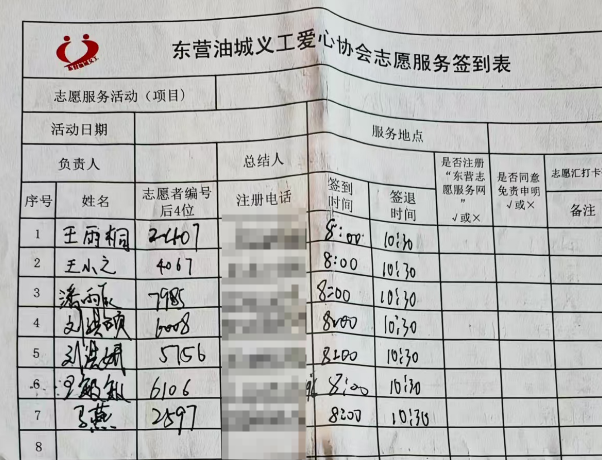 东营油城义工爱心协会志愿服务签到表
志愿服务活动（项目）
活动日期 服务地点
负责人 总结人 是否注册“东营志愿服务网”√或× 是否同意免责申明√或× 志愿汇打卡
序号 姓名 志愿者编号后4位 注册电话 签到时间 签退时间 备注
1 王雨桐 2407 8:00 10:30
2 王小之 4067 8:00 10:30
3 潘雨 7985 8:00 10:30
4 刘 6008 8:00 10:30
5 刘 5756 8:00 10:30
6 敏 6106 8:00 10:30
7 燕 2597 8:00 10:30
8